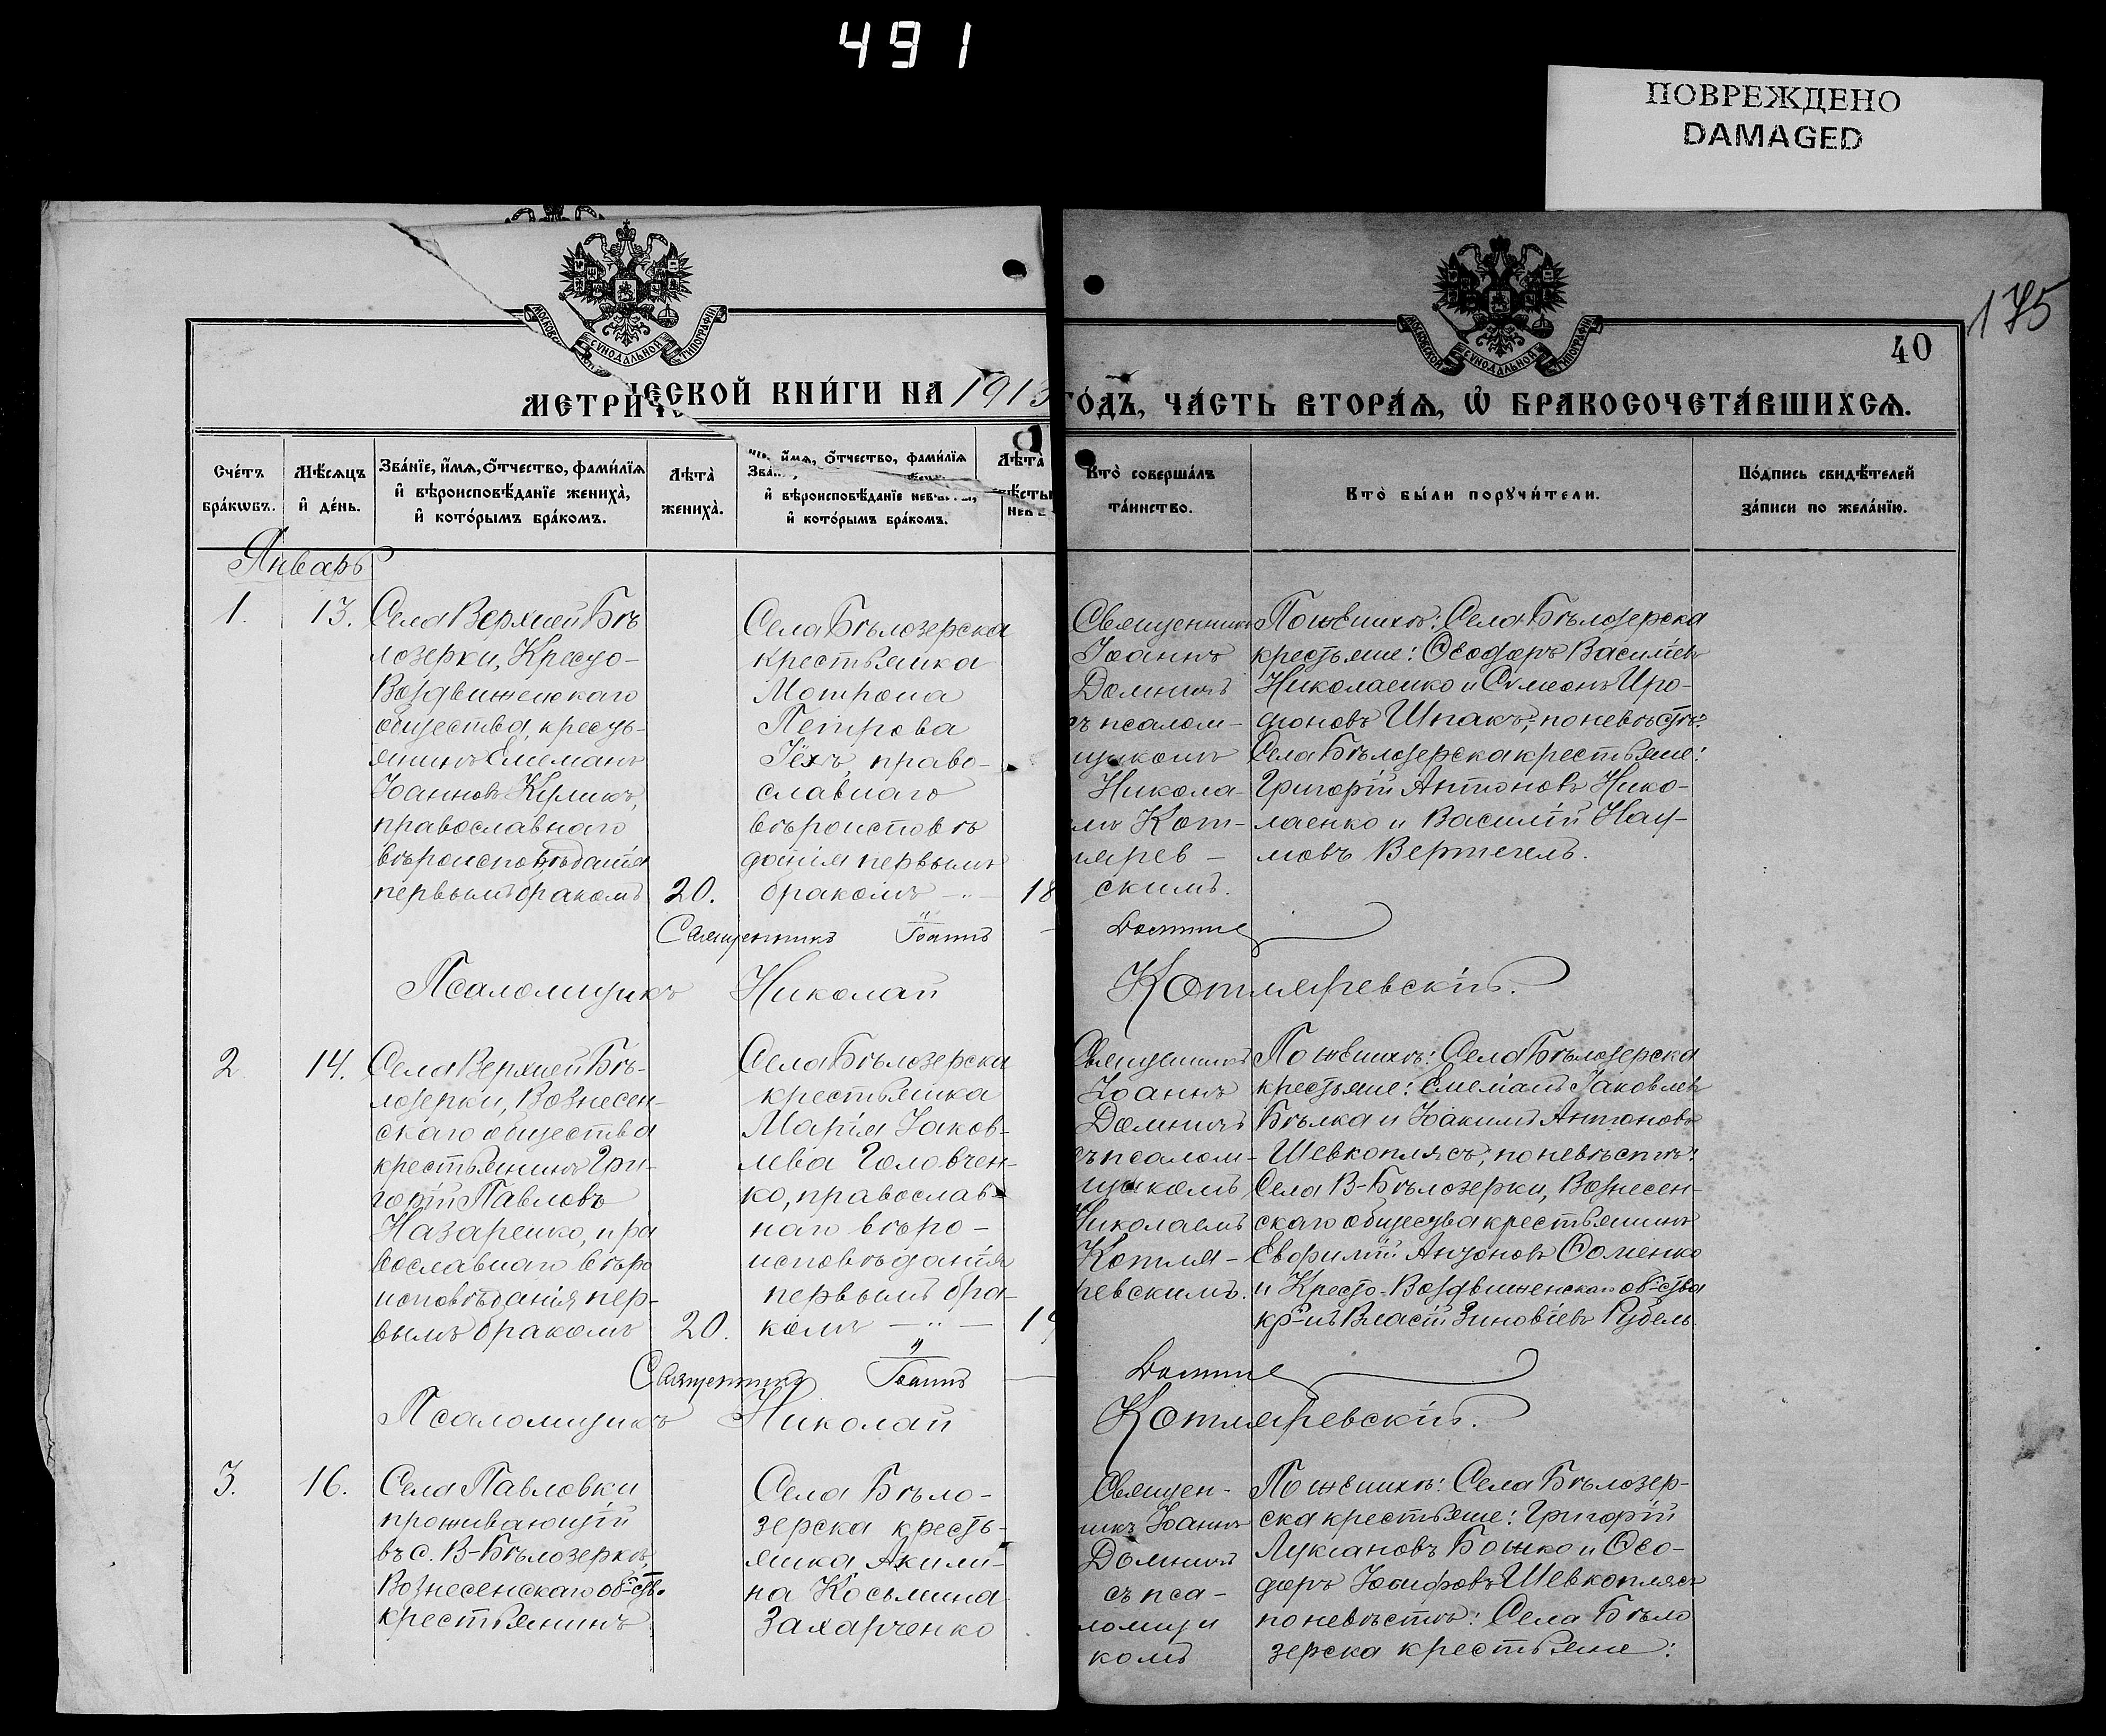 491
ПОВРЕЖДЕНО
DAMAGED
175
40
МОСКОВСКОЙ СУНОДАЛЬНОЙ ТИПОГРАФІИ
МОСКОВСКОЙ СУНОДАЛЬНОЙ ТИПОГРАФІИ
МЕТРИЧЕСКОЙ КНИ́ГИ НА 1913
ГО́ДЪ, ЧА́СТЬ ВТОРА́Я, Ѡ҆ БРАКОСОЧЕТА́ВШИХСЯ.
Сче́тъ
бра́кѡвъ.
Мѣ́сяцъ
и҆ де́нь.
Зва́нїе, и҆́мя, ѻ҆́тчество, фами́лїя
и҆ вѣроисповѣ́данїе жениха̀,
и҆ кото́рымъ бра́комъ.
Лѣта̀
жениха̀.
и҆́мя, ѻ҆́тчество, фами́лїя
и҆ вѣроисповѣ́данїе
и҆ кото́рымъ бра́комъ.
Лѣта̀
Кто̀ соверша́лъ
та́инство.
Кто̀ бы́ли порꙋчи́тели.
По́дпись свидѣ́телей
за́писи по жела́нїю.
Январь
1.
13.
Села Верхней Бѣ
лозерки, Кресто-
Воздвиженскаго
общества, кресть-
янинъ Емеліанъ
Іоанновъ
православнаго
вѣроисповѣданія
первымъ бракомъ
20.
Села Бѣлозерска
крестьянка
Матрона
Петрова
право-
славнаго
вѣроисповѣ
данія первымъ
бракомъ — " —
18
Священникъ
Іоаннъ
Домничъ
съ псалом-
щикомъ
Никола-
емъ Кот-
ляров -
скимъ.
По женихѣ: Села Бѣлозерска
крестьяне: Ѳеодоръ Василіевъ
Николаенко и Сумеонъ Иро-
діоновъ Шпакъ; по невѣстѣ:
Села Бѣлозерска крестьяне:
Григорій Антоновъ Нико-
лаенко и Василій Нау-
мовъ Вертегелъ.
Священникъ Іоаннъ Домничъ
Псаломщикъ Николай Котляревскій.
2
14.
Села Верхней Бѣ-
лозерки, Вознесен-
скаго общества
крестьянинъ Гри-
горій Павловъ
Назаренко, пра
вославнаго вѣро
исповѣданія пер-
вымъ бракомъ
20.
Села Бѣлозерска
крестьянка
Марія Іаков-
лева Головчен-
ко, православ-
наго вѣро -
исповѣданія
первымъ бра-
комъ — " —
19
Священникъ
Іоаннъ
Домничъ
съ псалом-
щикомъ
Николаемъ
Котля-
ревскимъ.
По женихѣ: Села Бѣлозерска
крестьяне: Емеліанъ Іаковлевъ
Бѣлка и Іоакимъ Антоновъ
Шевкоплясъ; по невѣстѣ:
Села В-Бѣлозерки, Вознесен-
скаго общества крестьянинъ
Евфимій Антоновъ Ѳоменко
и Кресто-Воздвиженскаго об-ства
кр-нъ Власій Зиновіевъ Рубель.
Священникъ Іоаннъ Домничъ
Псаломщикъ Николай Котляревскій.
3.
16.
Села Павловки
проживающій
въ с. В-Бѣлозеркѣ,
Вознесенскаго об-ств.
крестьянинъ
Села Бѣло-
зерска кресть-
янка Акили-
на Косьмина
Захарченко
Священ-
никъ Іоаннъ
Домничъ
съ пса-
ломщи
комъ
По женихѣ: Села Бѣлозер-
ска крестьяне: Григорій
Лукіановъ Божко и Ѳео-
доръ Іосифовъ Шевкоплясъ
по невѣстѣ: Села Бѣло
зерска крестьяне: